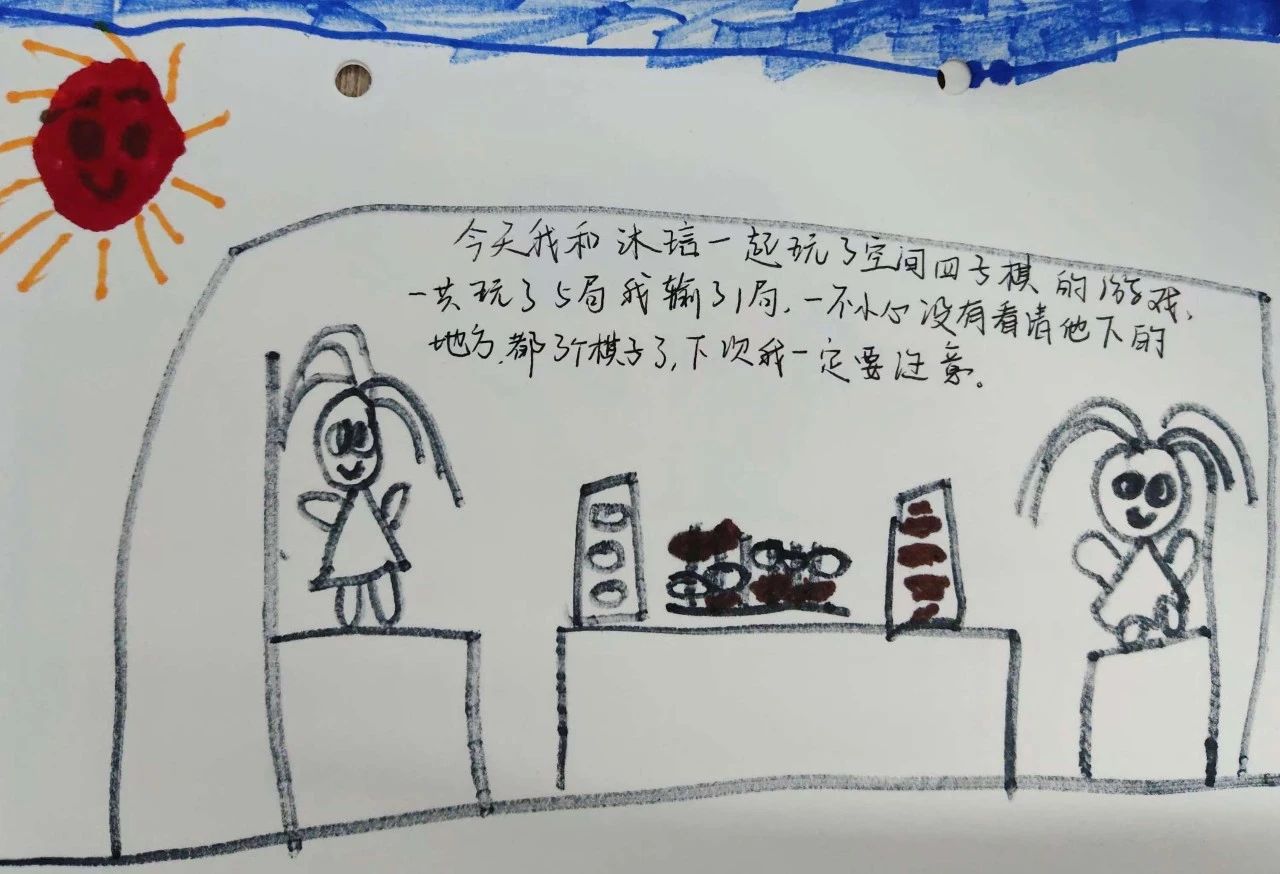 今天我和沐琣一起玩了空间四子棋的游戏,
一共玩了5局我输了1局,一不小心没有看清他下的
地方,都了个棋子了,下次我一定要注意。